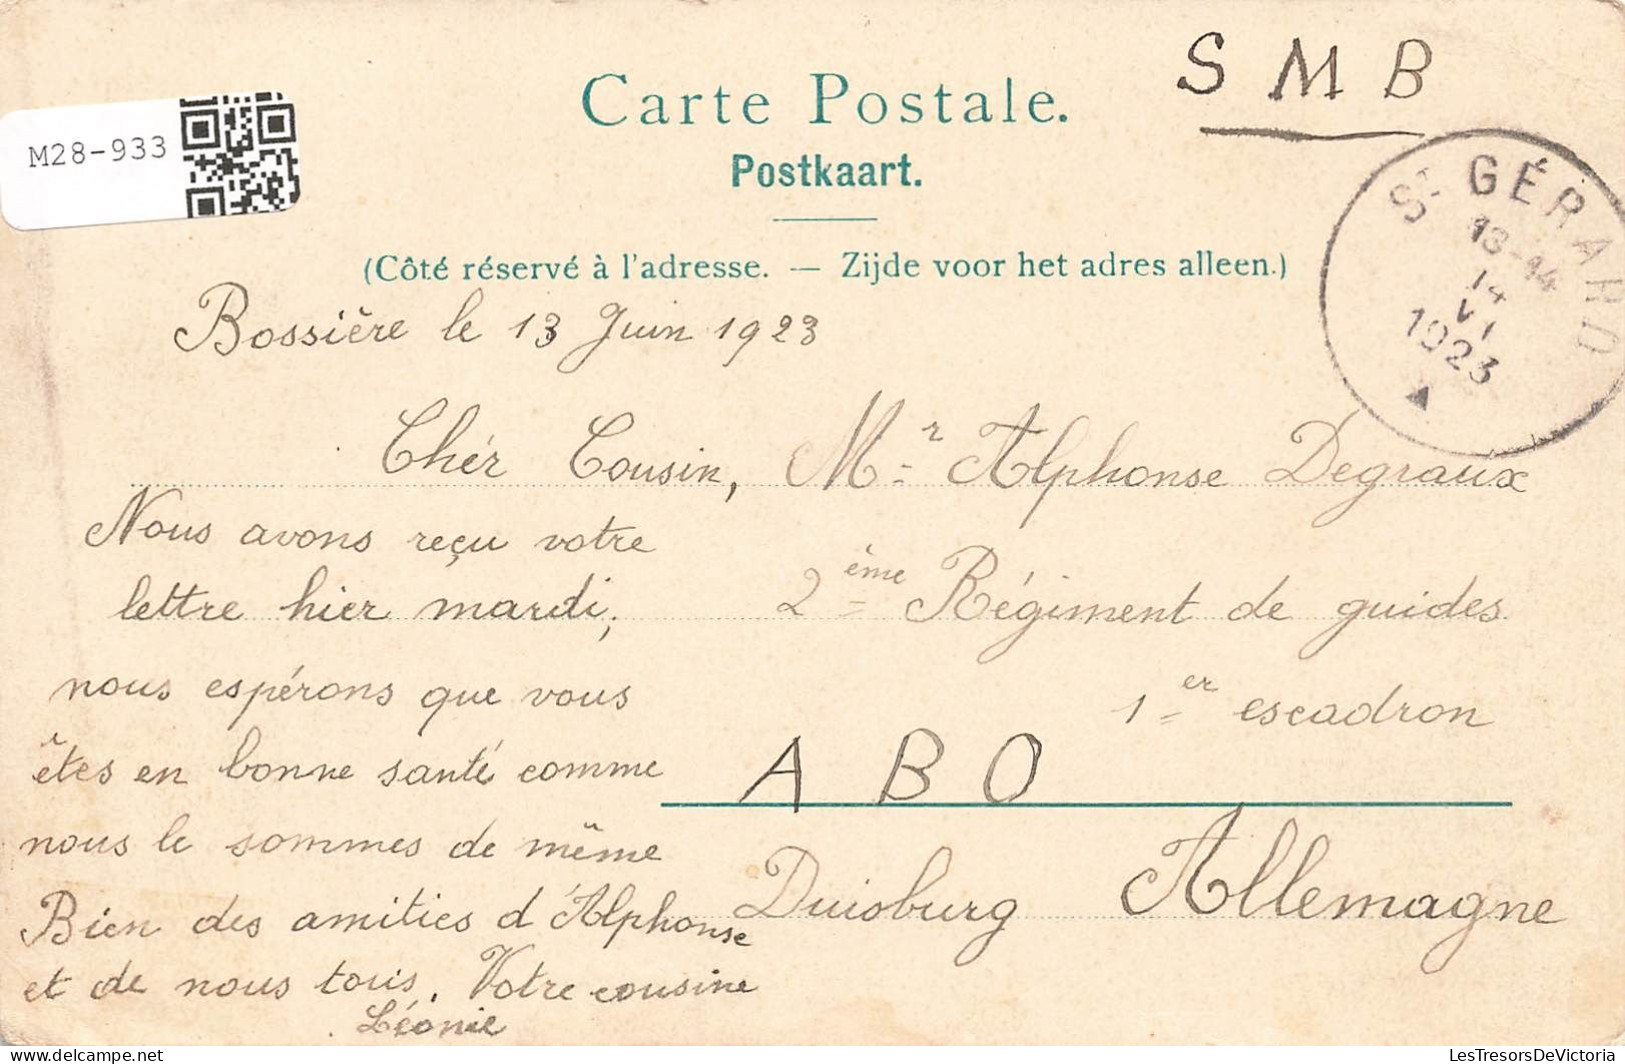 S M B
Carte Postale.
Postkaart.
M28-933
(Côté réservé à l'adresse. — Zijde voor het adres alleen.)
ST GÉRARD
13-14
14
VI
1923
Bossière le 13 Juin 1923
Chér Cousin,
Nous avons reçu votre
lettre hier mardi,
nous espérons que vous
êtes en bonne santé comme
nous le sommes de même
Bien des amitiés d'Alphonse
et de nous tous. Votre cousine
Léonie
Mr Alphonse Degraux
2ème Régiment de guides
1er escadron
A B O
Duisburg Allemagne
delcampe.net
LesTresorsDeVictoria